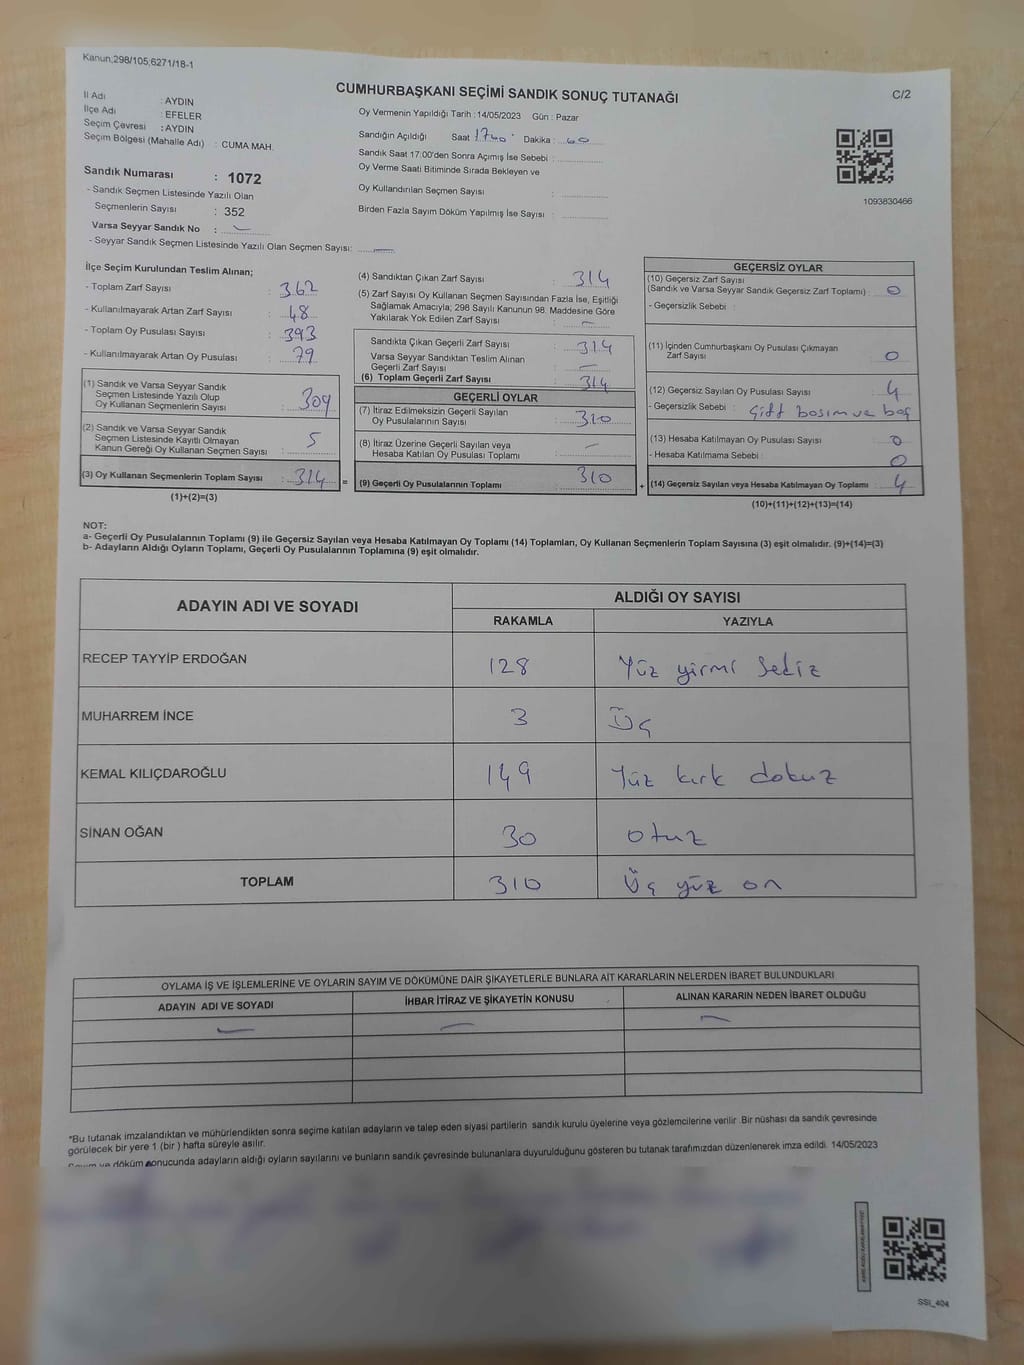 Kanun;298/105;6271/18-1
CUMHURBAŞKANI SEÇİMİ SANDIK SONUÇ TUTANAĞI
C/2
İl Adı : AYDIN
İlçe Adı : EFELER
Seçim Çevresi : AYDIN
Seçim Bölgesi (Mahalle Adı) : CUMA MAH.
Sandık Numarası : 1072
- Sandık Seçmen Listesinde Yazılı Olan
Seçmenlerin Sayısı : 352
Varsa Seyyar Sandık No : —
- Seyyar Sandık Seçmen Listesinde Yazılı Olan Seçmen Sayısı: —
Oy Vermenin Yapıldığı Tarih : 14/05/2023 Gün : Pazar
Sandığın Açıldığı Saat Dakika :
Sandık Saat 17:00'den Sonra Açımış İse Sebebi :
Oy Verme Saati Bitiminde Sırada Bekleyen ve
Oy Kullandırılan Seçmen Sayısı :
Birden Fazla Sayım Döküm Yapılmış İse Sayısı :
1093830466
İlçe Seçim Kurulundan Teslim Alınan;
- Toplam Zarf Sayısı : 362
- Kullanılmayarak Artan Zarf Sayısı : 48
- Toplam Oy Pusulası Sayısı : 393
- Kullanılmayarak Artan Oy Pusulası : 79
(1) Sandık ve Varsa Seyyar Sandık
Seçmen Listesinde Yazılı Olup
Oy Kullanan Seçmenlerin Sayısı : 309
(2) Sandık ve Varsa Seyyar Sandık
Seçmen Listesinde Kayıtlı Olmayan
Kanun Gereği Oy Kullanan Seçmen Sayısı : 5
(3) Oy Kullanan Seçmenlerin Toplam Sayısı : 314 =
(1)+(2)=(3)
(4) Sandıktan Çıkan Zarf Sayısı : 314
(5) Zarf Sayısı Oy Kullanan Seçmen Sayısından Fazla İse, Eşitliği
Sağlamak Amacıyla; 298 Sayılı Kanunun 98. Maddesine Göre
Yakılarak Yok Edilen Zarf Sayısı : —
Sandıkta Çıkan Geçerli Zarf Sayısı : 314
Varsa Seyyar Sandıktan Teslim Alınan
Geçerli Zarf Sayısı : —
(6) Toplam Geçerli Zarf Sayısı : 314
GEÇERLİ OYLAR
(7) İtiraz Edilmeksizin Geçerli Sayılan
Oy Pusulalarının Sayısı : 310
(8) İtiraz Üzerine Geçerli Sayılan veya
Hesaba Katılan Oy Pusulası Toplamı : —
(9) Geçerli Oy Pusulalarının Toplamı : 310 +
GEÇERSİZ OYLAR
(10) Geçersiz Zarf Sayısı
(Sandık ve Varsa Seyyar Sandık Geçersiz Zarf Toplamı) : 0
- Geçersizlik Sebebi :
(11) İçinden Cumhurbaşkanı Oy Pusulası Çıkmayan
Zarf Sayısı : 0
(12) Geçersiz Sayılan Oy Pusulası Sayısı : 4
- Geçersizlik Sebebi : Çift basım ve boş
(13) Hesaba Katılmayan Oy Pusulası Sayısı : 0
- Hesaba Katılmama Sebebi : 0
(14) Geçersiz Sayılan veya Hesaba Katılmayan Oy Toplamı : 4
(10)+(11)+(12)+(13)=(14)
NOT:
a- Geçerli Oy Pusulalarının Toplamı (9) ile Geçersiz Sayılan veya Hesaba Katılmayan Oy Toplamı (14) Toplamları, Oy Kullanan Seçmenlerin Toplam Sayısına (3) eşit olmalıdır. (9)+(14)=(3)
b- Adayların Aldığı Oyların Toplamı, Geçerli Oy Pusulalarının Toplamına (9) eşit olmalıdır.
ADAYIN ADI VE SOYADI ALDIĞI OY SAYISI
RAKAMLA YAZIYLA
RECEP TAYYİP ERDOĞAN 128 Yüz yirmi Sekiz
MUHARREM İNCE 3 Üç
KEMAL KILIÇDAROĞLU 149 Yüz kırk dokuz
SİNAN OĞAN 30 otuz
TOPLAM 310 Üç yüz on
OYLAMA İŞ VE İŞLEMLERİNE VE OYLARIN SAYIM VE DÖKÜMÜNE DAİR ŞİKAYETLERLE BUNLARA AİT KARARLARIN NELERDEN İBARET BULUNDUKLARI
ADAYIN ADI VE SOYADI İHBAR İTİRAZ VE ŞİKAYETİN KONUSU ALINAN KARARIN NEDEN İBARET OLDUĞU
— — —
*Bu tutanak imzalandıktan ve mühürlendikten sonra seçime katılan adayların ve talep eden siyasi partilerin sandık kurulu üyelerine veya gözlemcilerine verilir .Bir nüshası da sandık çevresinde
görülecek bir yere 1 (bir ) hafta süreyle asılır.
ve döküm sonucunda adayların aldığı oyların sayılarını ve bunların sandık çevresinde bulunanlara duyurulduğunu gösteren bu tutanak tarafımızdan düzenlenerek imza edildi. 14/05/2023
SSI_404